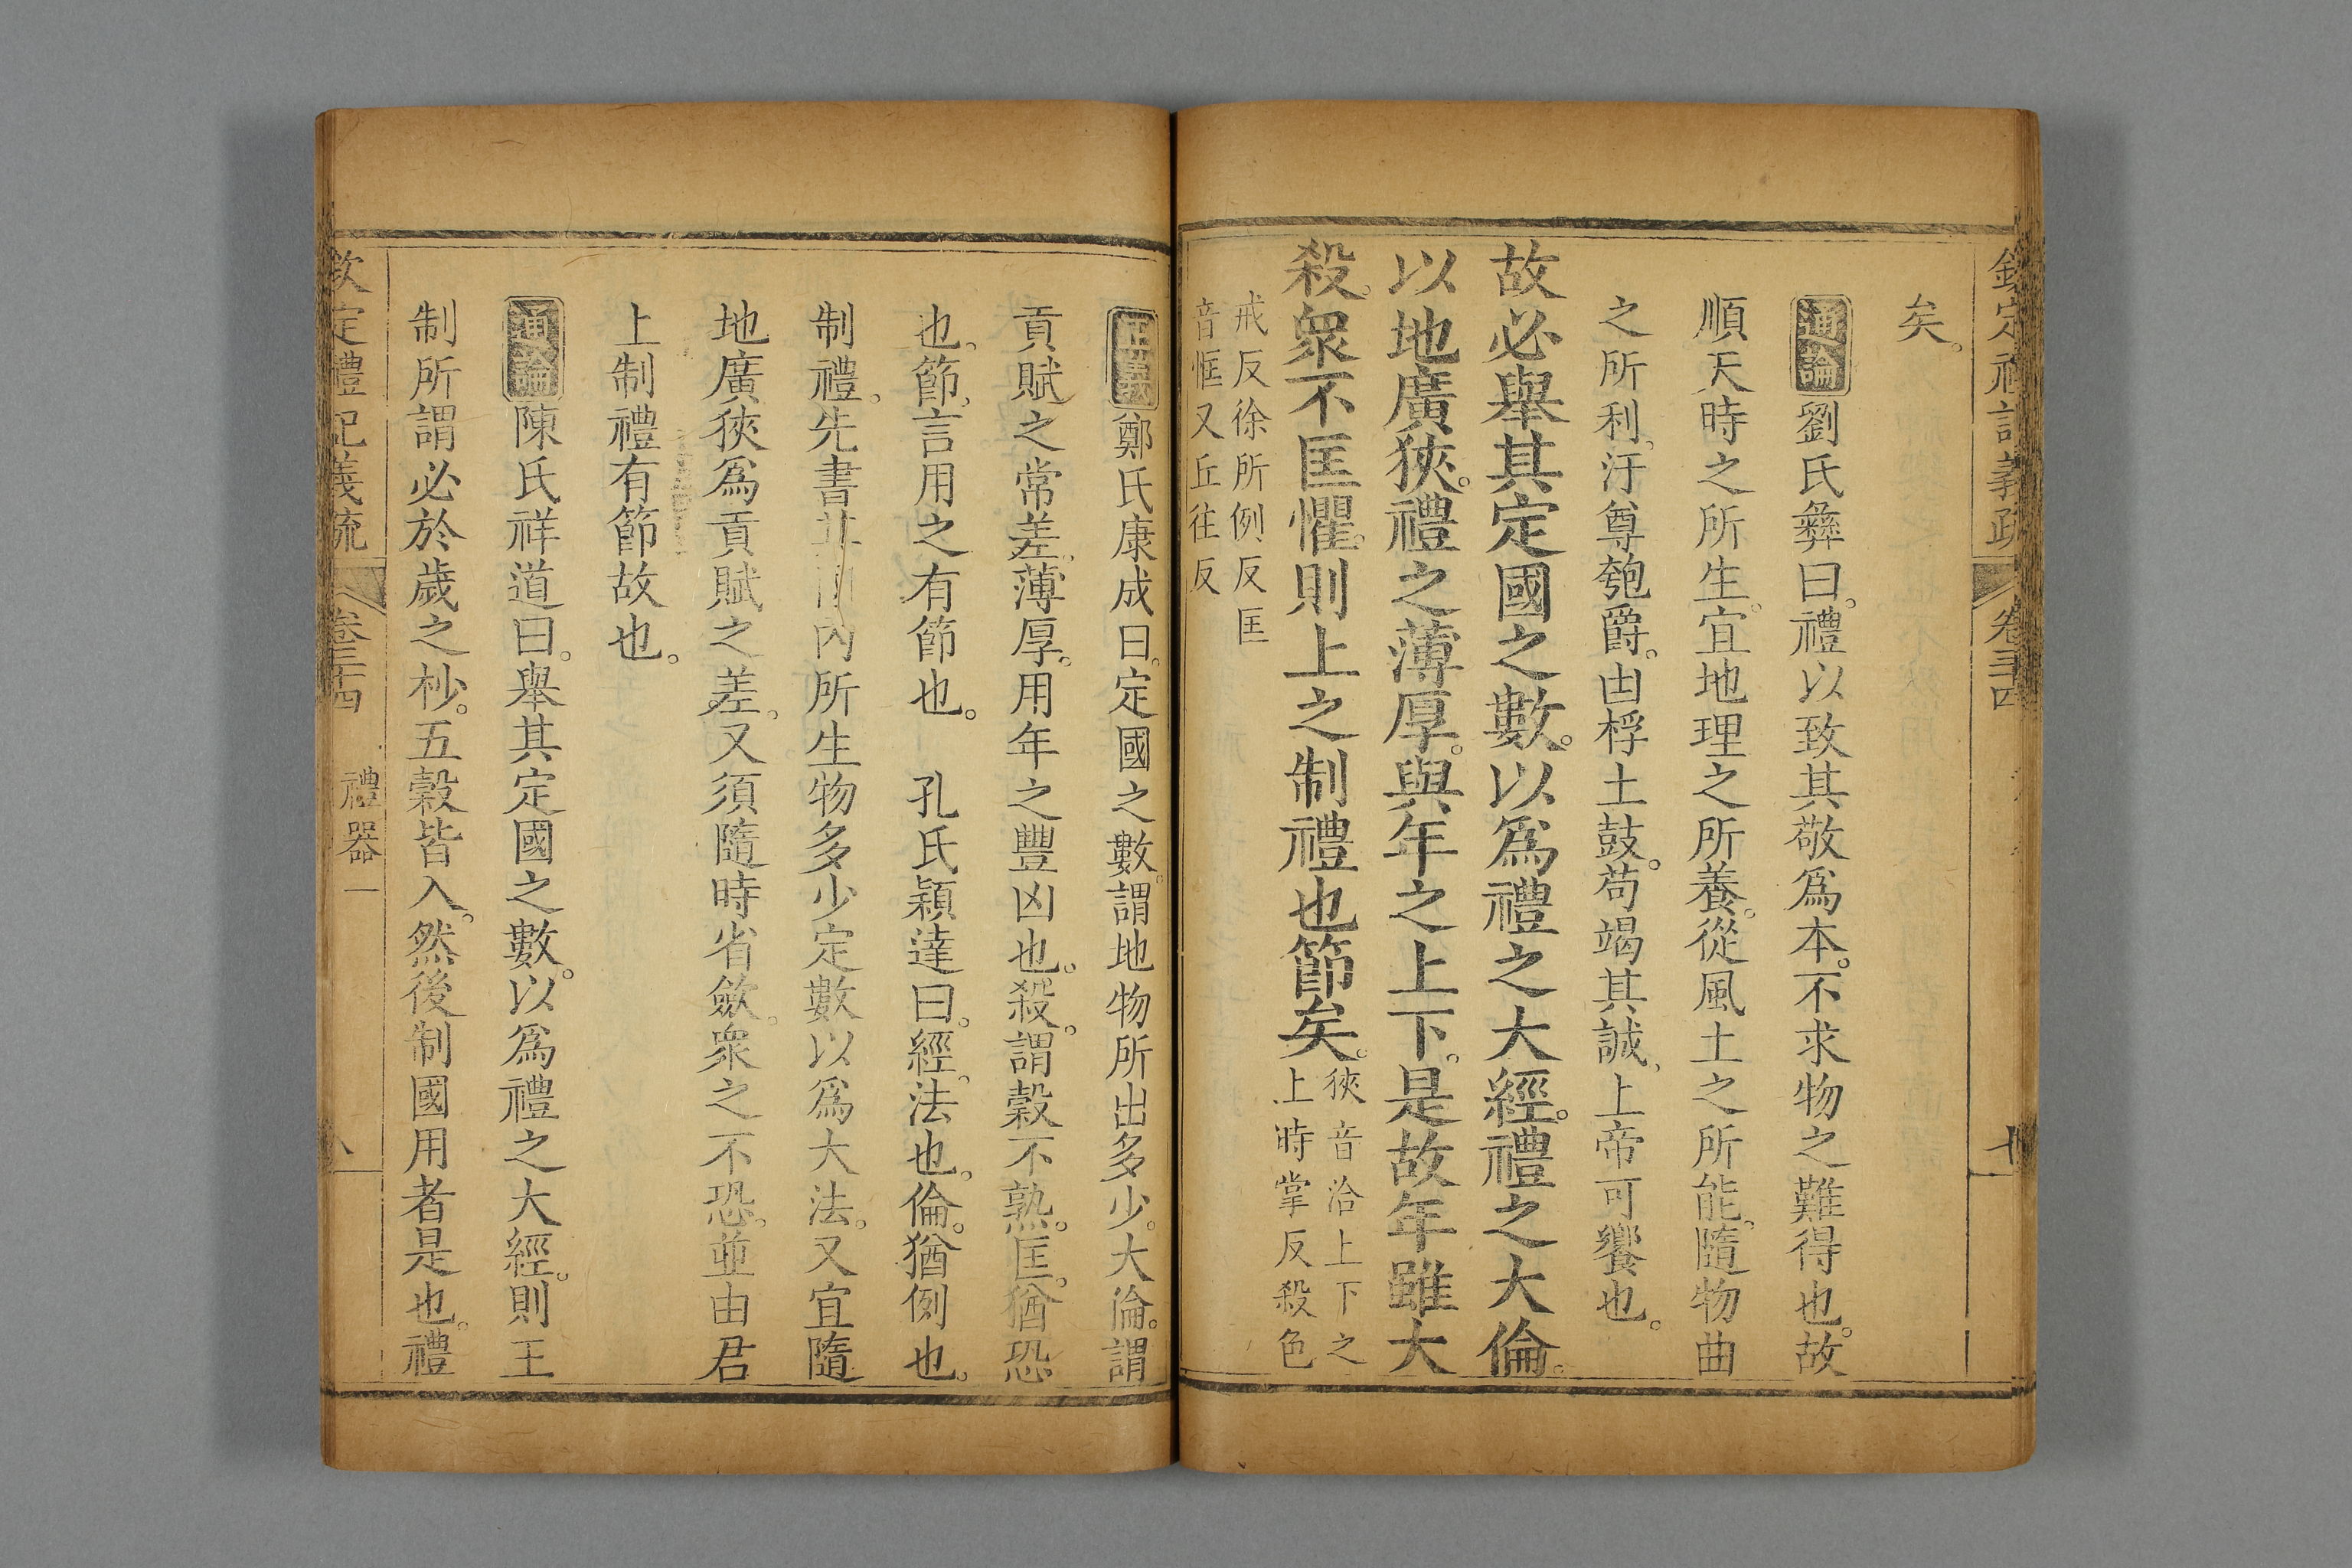 欽定禮記義疏 卷三十四
矣。
通論 劉氏彝曰。禮以致其敬爲本。不求物之難得也。故
順天時之所生。宜地理之所養。從風土之所能。隨物曲
之所利。汙尊匏爵。由桴土鼓。苟竭其誠、上帝可饗也。
故必舉其定國之數。以爲禮之大經。禮之大倫。
以地廣狹。禮之薄厚。與年之上下。是故年雖大
殺。衆不匡懼。則上之制禮也節矣。
狹音洽上下之
上時掌反殺色
戒反徐所例反匡
音恇又丘往反
正義 鄭氏康成曰。定國之數。謂地物所出多少。大倫。謂
貢賦之常差。薄厚。用年之豐凶也。殺。謂穀不熟。匡。猶恐
也。節、言用之有節也。 孔氏穎達曰。經。法也。倫。猶例也。
制禮。先書其國內所生物多少定數以爲大法。又宜隨
地廣狹爲貢賦之差。又須隨時省斂。衆之不恐。並由君
上制禮有節故也。
通論 陳氏祥道曰。舉其定國之數。以爲禮之大經。則王
制所謂必於歲之杪。五穀皆入。然後制國用者是也。禮
欽定禮記義疏 卷三十四 禮器一